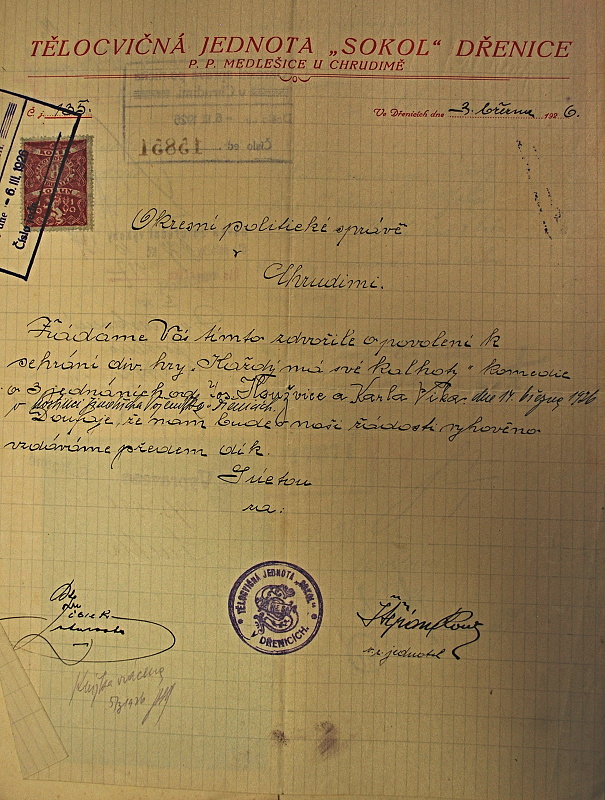 TĚLOCVIČNÁ JEDNOTA „SOKOL" DŘENICE
P. P. MEDLEŠICE U CHRUDIMĚ
Č j. 135.
Ve Dřenicích dne 3. března 1926.
- 6. III. 1926
Číslo
15851
Okresní politické správě
v
Chrudimi.
Žádáme Vás tímto zdvořile o povolení k
sehrání div. hry „Každý má své kalhoty" komedie
o 3 jednáních od a Karla Fíka dne 14. března 1926
v hostinci
Doufaje, že nám bude naší žádosti vyhověno
vzdáváme předem dík.
S úctou
za:
TĚLOCVIČNÁ JEDNOTA „SOKOL"
V DŘENICÍCH.
starosta
jednatel
5/3 1926